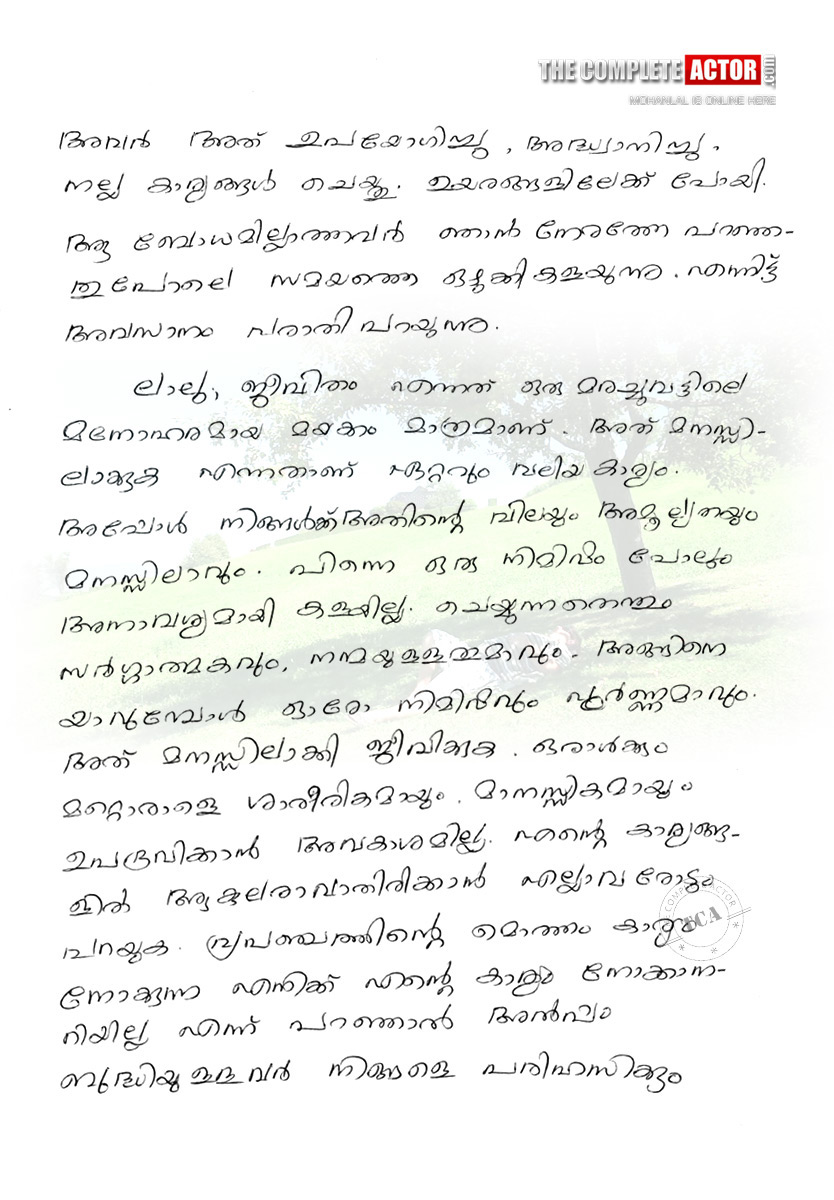 THE COMPLETE ACTOR .com
MOHANLAL IS ONLINE HERE
അവൻ അത് ഉപയോഗിച്ചു, അദ്ധ്വാനിച്ചു,
നല്ല കാര്യങ്ങൾ ചെയ്തു. ഉയരങ്ങളിലേക്ക് പോയി.
ആ ബോധമില്ലാത്തവർ ഞാൻ നേരത്തേ പറഞ്ഞ-
തുപോലെ സമയത്തെ ഒഴുക്കികളയുന്നു. എന്നിട്ട്
അവസാനം പരാതി പറയുന്നു.
ലാലു, ജീവിതം എന്നത് ഒരു മരച്ചുവട്ടിലെ
മനോഹരമായ മയക്കം മാത്രമാണ്. അത് മനസ്സി-
ലാക്കുക എന്നതാണ് ഏറ്റവും വലിയ കാര്യം.
അപ്പോൾ നിങ്ങൾക്ക് അതിന്റെ വിലയും അമൂല്യതയും
മനസ്സിലാവും. പിന്നെ ഒരു നിമിഷം പോലും
അനാവശ്യമായി കളയില്ല. ചെയ്യുന്നതെന്തും
സർഗ്ഗാത്മകവും, നന്മയുള്ളതുമാവും. അങ്ങിനെ
യാവുമ്പോൾ ഓരോ നിമിഷവും പൂർണ്ണമാവും.
അത് മനസ്സിലാക്കി ജീവിക്കുക. ഒരാൾക്കും
മറ്റൊരാളെ ശാരീരികമായും, മാനസ്സികമായും
ഉപദ്രവിക്കാൻ അവകാശമില്ല. എന്റെ കാര്യങ്ങ-
ളിൽ ആകുലരാവാതിരിക്കാൻ എല്ലാവരോടും
പറയുക. പ്രപഞ്ചത്തിന്റെ മൊത്തം കാര്യം
നോക്കുന്ന എനിക്ക് എന്റെ കാര്യം നോക്കാന-
റിയില്ല എന്ന് പറഞ്ഞാൽ അൽപ്പം
ബുദ്ധിയുള്ളവർ നിങ്ങളെ പരിഹസിക്കും
COMPLETE ACTOR
TCA